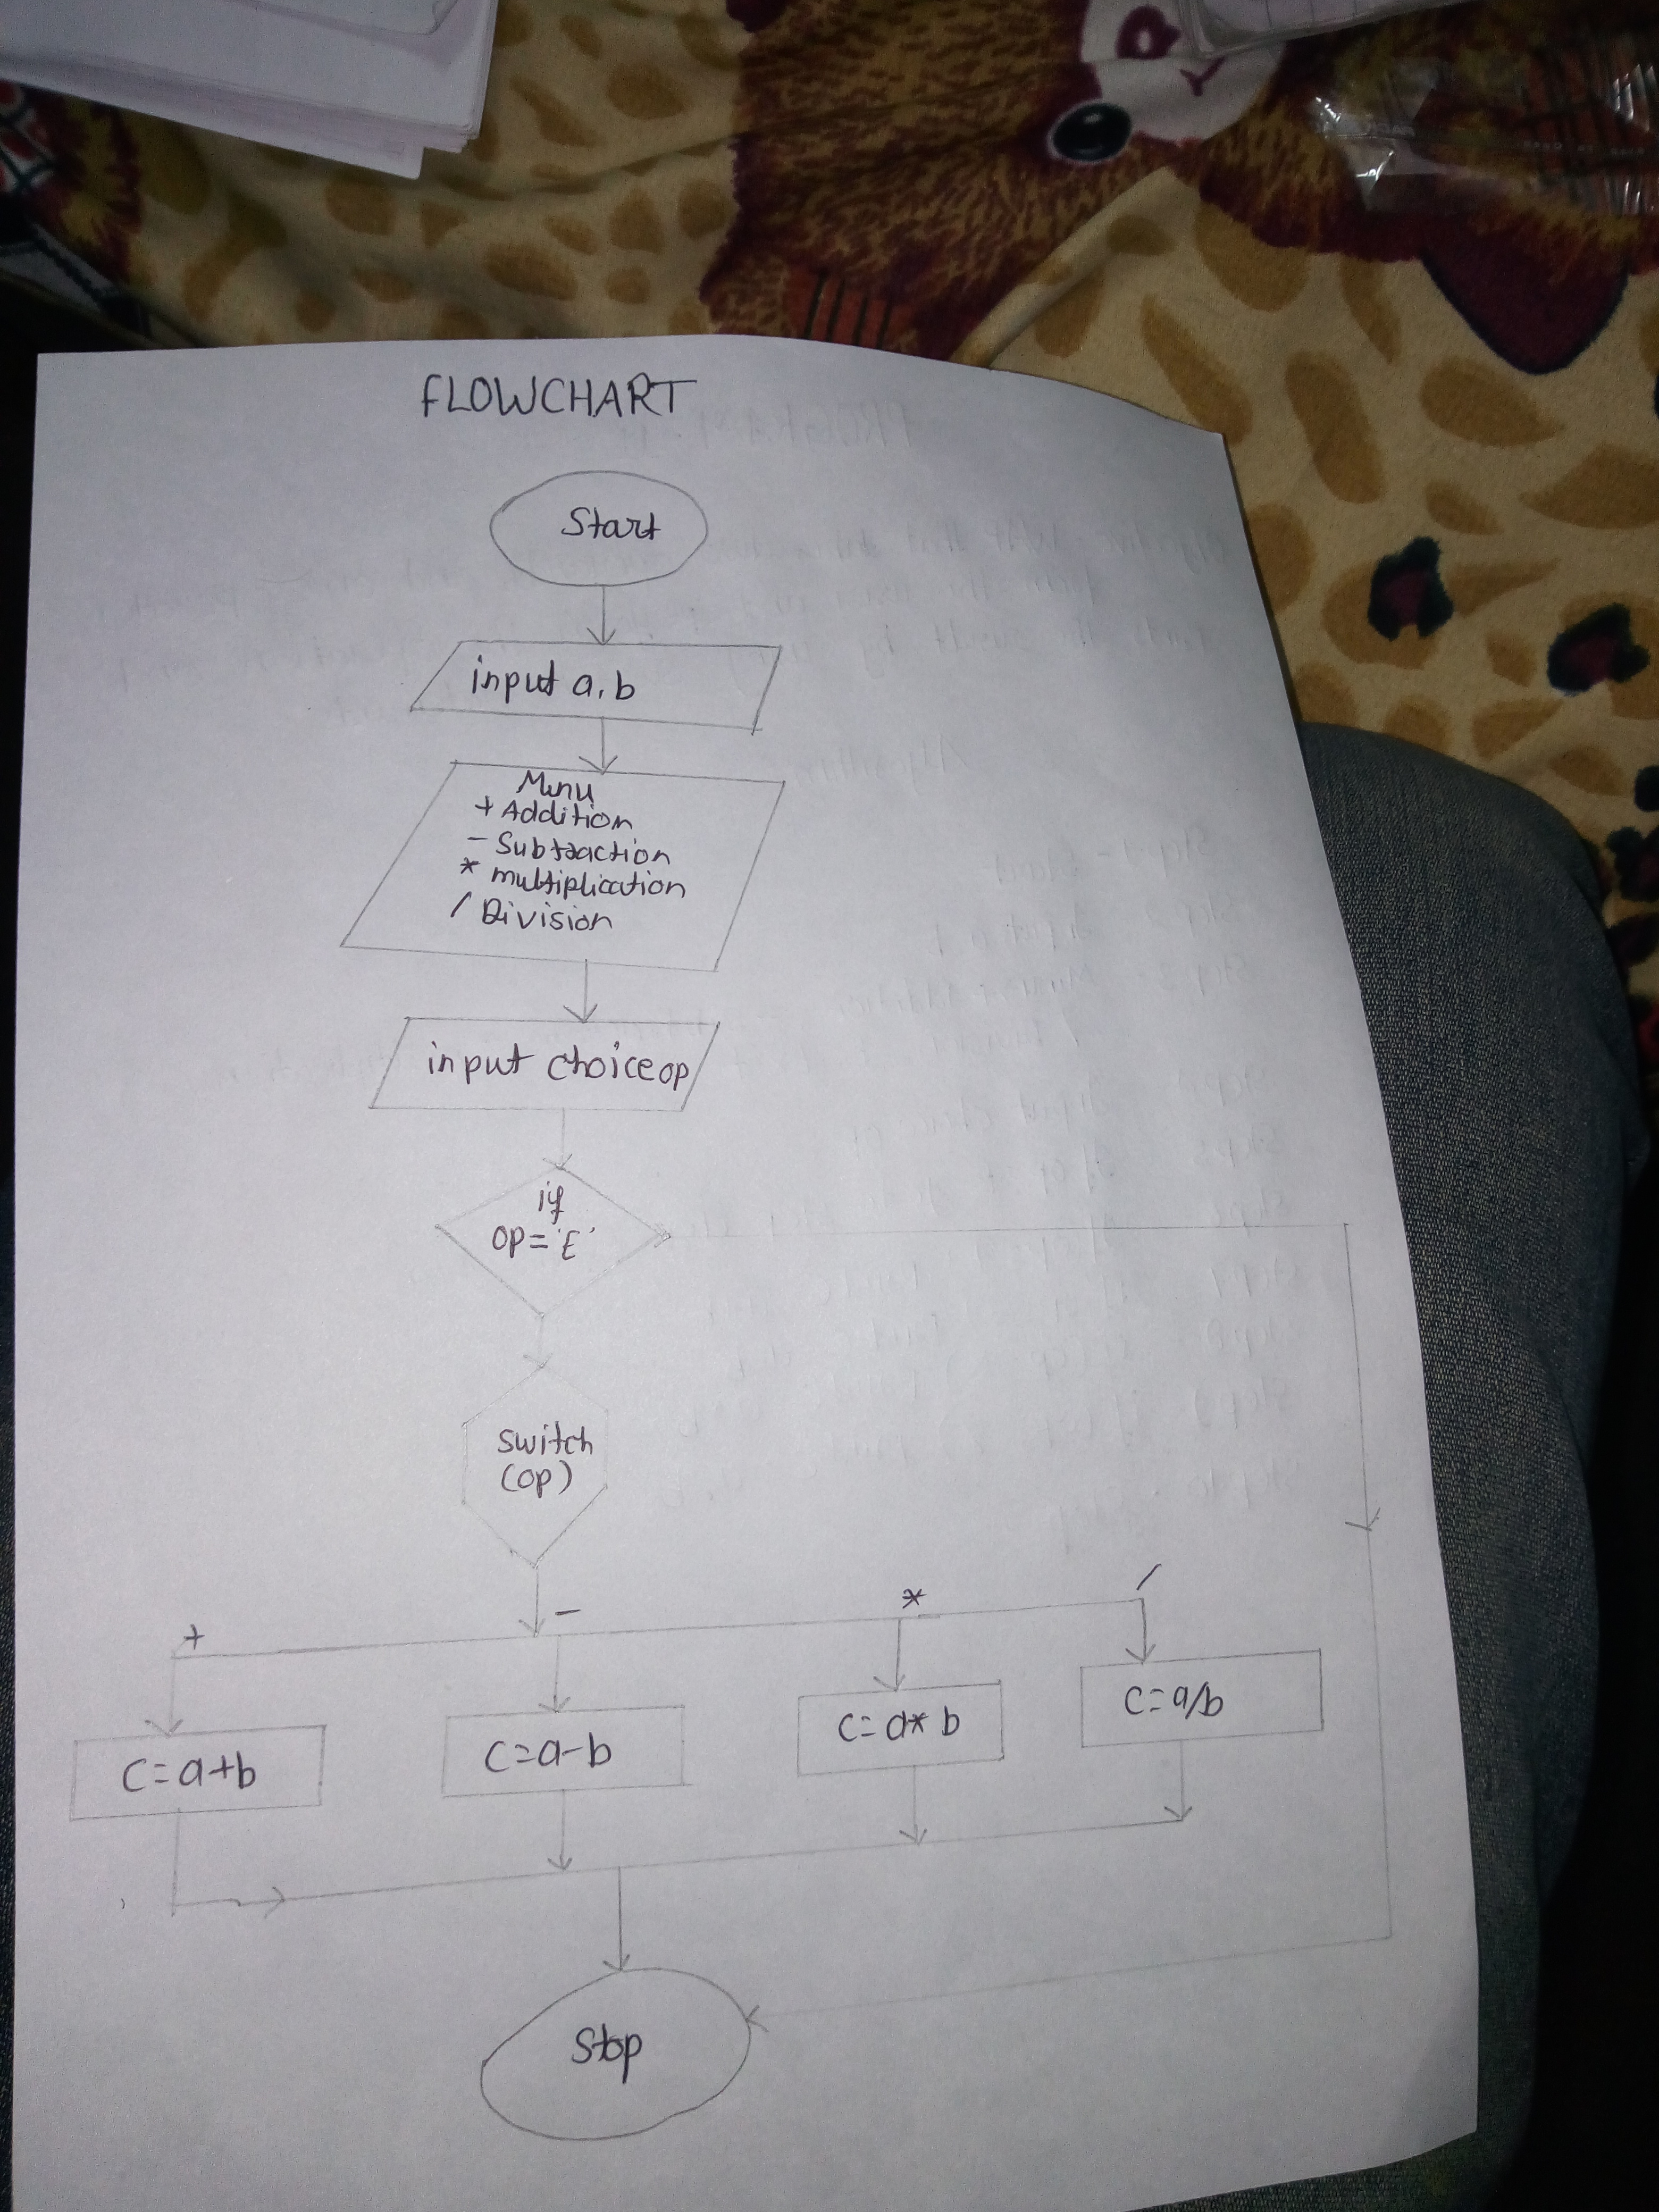 FLOWCHART
Start
input a, b
Menu
+ Addition
- Subtraction
* multiplication
/ Division
input choice op
if
op= 'E'
switch
(op)
+
-
*
/
C=a+b
C=a-b
C=a*b
C=a/b
Stop